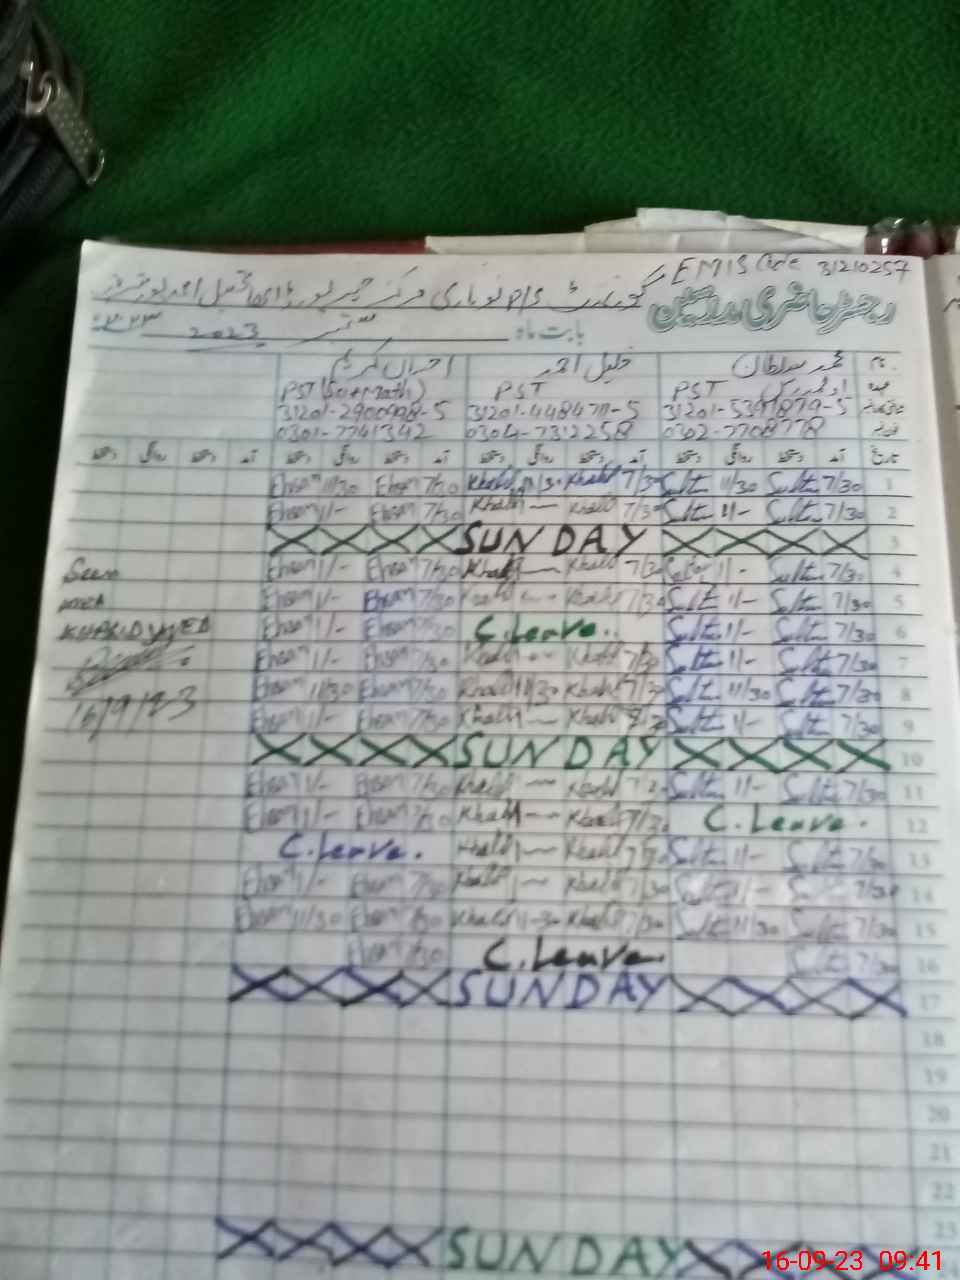 EMIS Code 31210257
رجسٹر حاضری مدرسین
بابت ماہ ستمبر 2023 ۲۰۲۳
نام محمد سلطان خلیل احمد احسان کریم
عہدہ PST PST PST (Sci+Math)
31201-448471-5
0302-7708778 0304-7312258 0301-7741342
تاریخ آمد دستخط روانگی دستخط آمد دستخط روانگی دستخط آمد دستخط روانگی دستخط آمد دستخط روانگی دستخط
1 7/30 Sultan 11/30 Sultan 7/30 Khalil 11/30 Khalil 7/30 Ehsan 11/30 Ehsan
2 7/30 Sultan 11/- Sultan 7/30 Khalil Khalil 7/30 Ehsan 1/- Ehsan
3 SUNDAY
4 7/30 Sultan 11/- Sultan 7/30 Khalil Khalil 7/30 Ehsan 1/- Ehsan
Seen
5 7/30 Sultan 11/- Sultan 7/30 Khalil Khalil 7/30 Ehsan 1/- Ehsan
6 7/30 Sultan 11/- Sultan C.Leave. 7/30 Ehsan 1/- Ehsan
7 7/30 Sultan 11/- Sultan 7/30 Khalil Khalil 7/30 Ehsan 1/- Ehsan
8 7/30 Sultan 11/30 Sultan 7/30 Khalil 11/30 Khalil 7/30 Ehsan 11/30 Ehsan
16/9/23
9 7/30 Sultan 11/- Sultan 7/30 Khalil Khalil 7/30 Ehsan 1/- Ehsan
10 SUNDAY
11 7/30 Sultan 11/- Sultan 7/30 Khalil Khalil 7/30 Ehsan 1/- Ehsan
12 C.Leave. 7/30 Khalil Khalil 7/30 Ehsan 1/- Ehsan
13 7/30 Sultan 11/- Sultan 7/30 Khalil Khalil C.Leave.
14 7/30 Sultan 11/- Sultan 7/30 Khalil Khalil 7/30 Ehsan 1/- Ehsan
15 7/30 Sultan 11/30 Sultan 7/30 Khalil 11-30 Khalil 7/30 Ehsan 11/30 Ehsan
16 7/30 Sultan C.Leave. 7/30 Ehsan
17 SUNDAY
18
19
20
21
22
23
SUNDAY
16-09-23 09:41